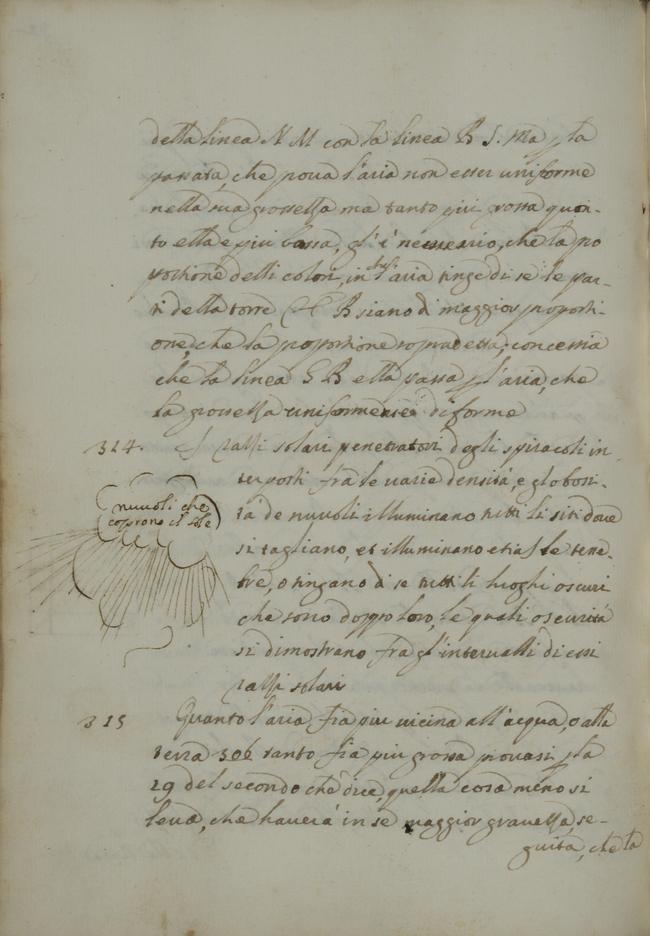 della linea N M con la linea R S. Ma p la
passata, che proua l'aria non esser uniforme
nella sua grossezza ma tanto più grossa quan-
to ella e più bassa, gl'è necessario, che la pro
portione delli colori, in che l'aria tinge di se le par-
ti della torre C B siano di maggior proporti-
one, che la proportione sopradetta, concosia
che la linea S B ella passa p l'aria, che
la grossezza uniformemente diforme
314. I razzi solari penetratori degli spiracoli in-
terposti fra le varie densità, e globosi-
tà de nuuoli illuminano tutti li siti doue
si tagliano, et illuminano etia le tene-
bre, o tingano di se tutti li luoghi oscuri
che sono doppo loro, le quali oscurità
si dimostrano fra gl'interualli di essi
razzi solari
nuuoli che
coprono il sole
315 Quanto l'aria fia più uicina all'acqua, o alla
terra 306 tanto fia più grossa prouasi p la
19 del secondo che dice, quella cosa meno si
leua, che hauerà in se maggior grauezza, se-
guita, che la